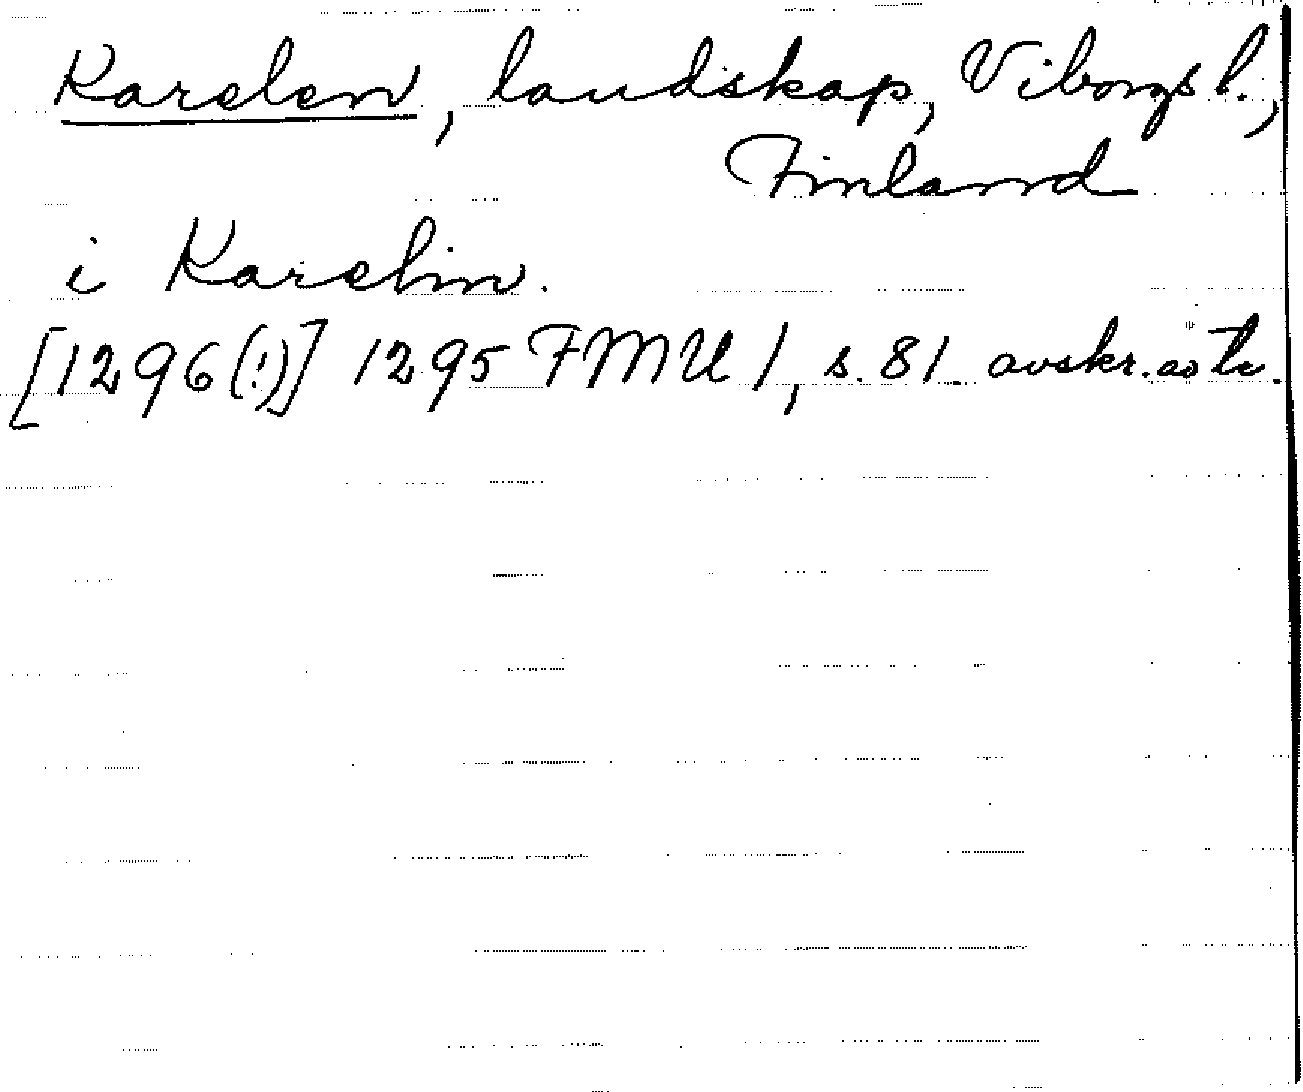 Karelen, landskap, Viborgs l.,
Finland
i Karelin.
[1296(!)] 1295 FMU 1, s. 81 avskr.